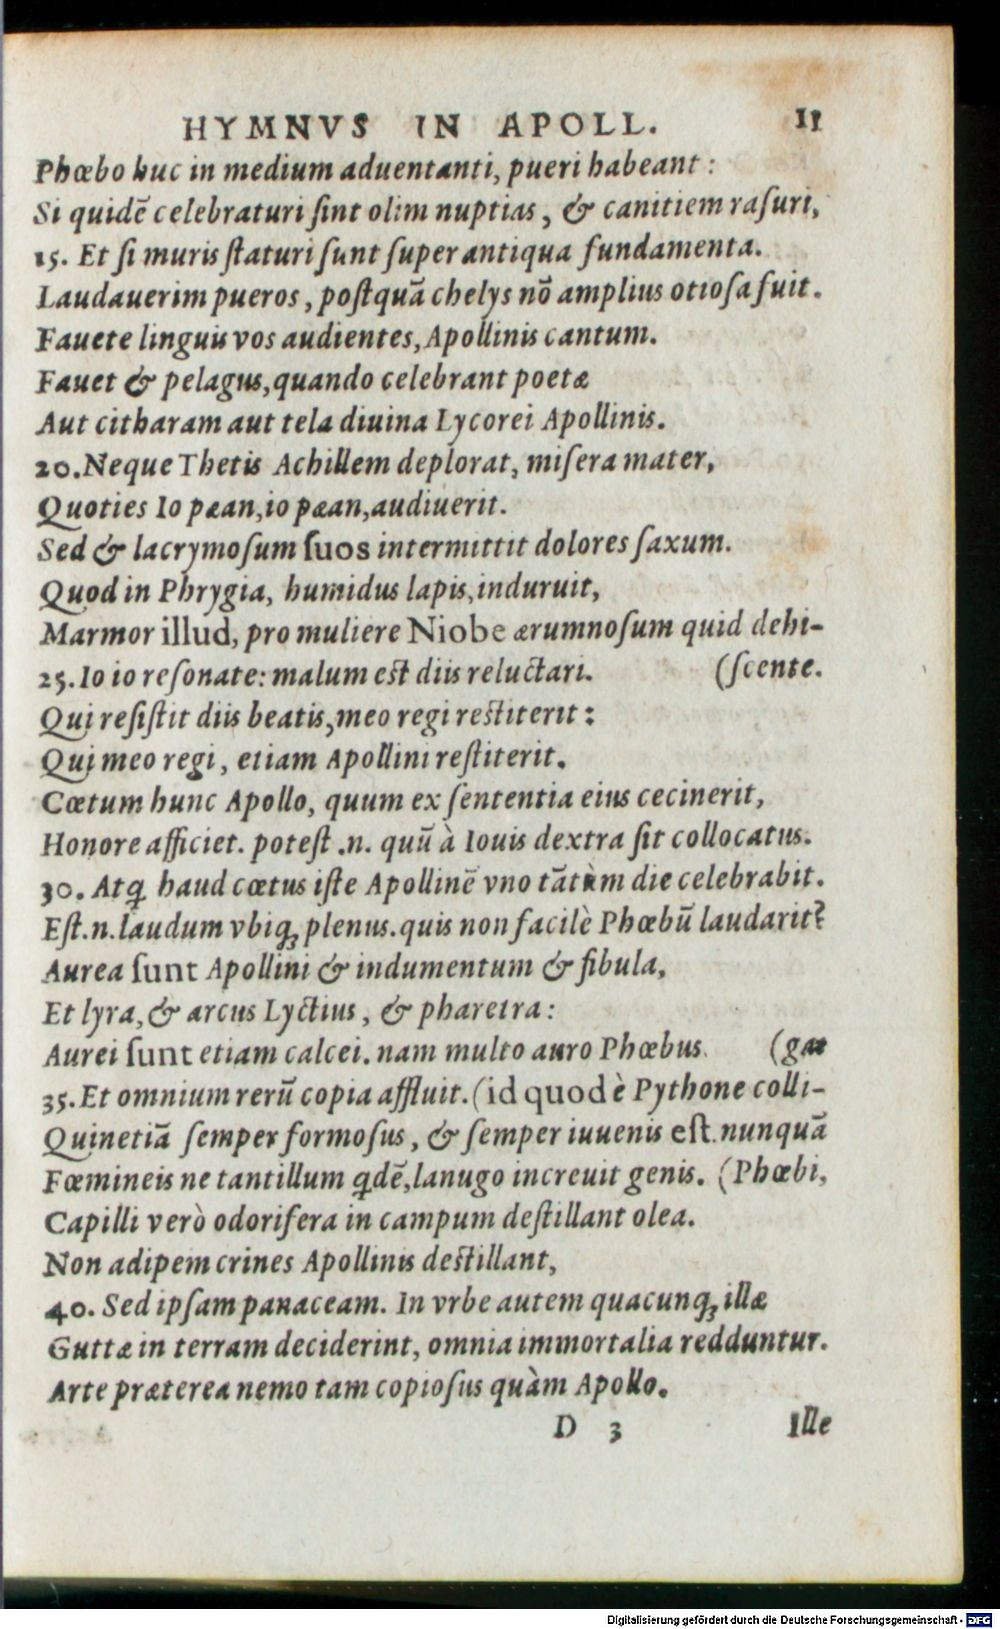 HYMNVS IN APOLL. 11
Phœbo huc in medium aduentanti, pueri habeant:
Si quidē celebraturi ſint olim nuptias, & canitiem raſuri,
15. Et ſi muris ſtaturi ſunt ſuper antiqua fundamenta.
Laudauerim pueros, poſtquā chelys nō amplius otioſa fuit.
Fauete linguis vos audientes, Apollinis cantum.
Fauet & pelagus, quando celebrant poetæ
Aut citharam aut tela diuina Lycorei Apollinis.
20. Neque Thetis Achillem deplorat, miſera mater,
Quoties Io pæan, io pæan, audiuerit.
Sed & lacrymoſum ſuos intermittit dolores ſaxum.
Quod in Phrygia, humidus lapis, induruit,
Marmor illud, pro muliere Niobe ærumnoſum quid dehi-
25. Io io reſonate: malum eſt diis reluctari. (ſcente.
Qui reſiſtit diis beatis, meo regi reſtiterit:
Qui meo regi, etiam Apollini reſtiterit.
Cœtum hunc Apollo, quum ex ſententia eius cecinerit,
Honore afficiet. poteſt .n. quū à Iouis dextra ſit collocatus.
30. Atqꝫ haud cœtus iſte Apollinē vno tātùm die celebrabit.
Eſt .n. laudum vbiqꝫ plenus. quis non facilè Phœbū laudarit?
Aurea ſunt Apollini & indumentum & fibula,
Et lyra, & arcus Lyctius, & pharetra:
Aurei ſunt etiam calcei. nam multo auro Phœbus. (gas
35. Et omnium rerū copia affluit. (id quod è Pythone colli-
Quinetiā ſemper formoſus, & ſemper iuuenis eſt. nunquā
Fœmineis ne tantillum q̄dē, lanugo increuit genis. (Phœbi,
Capilli verò odorifera in campum deſtillant olea.
Non adipem crines Apollinis deſtillant,
40. Sed ipſam panaceam. In vrbe autem quacunqꝫ illæ
Guttæ in terram deciderint, omnia immortalia redduntur.
Arte præterea nemo tam copioſus quàm Apollo.
D 3 Ille
Digitalisierung gefördert durch die Deutsche Forschungsgemeinschaft - DFG